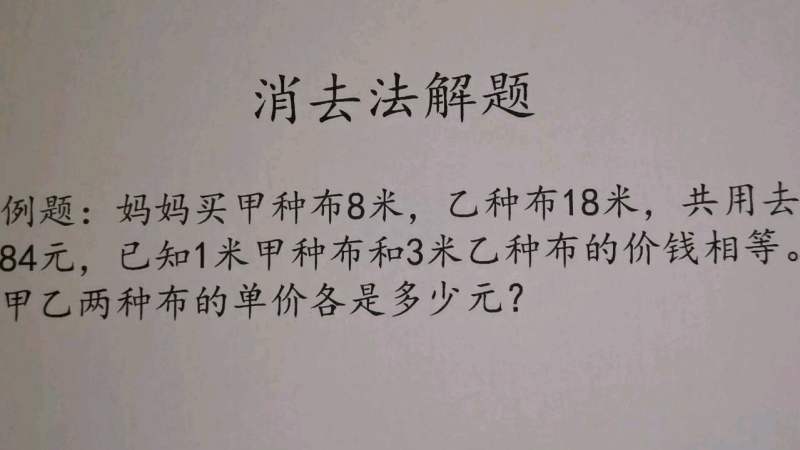 消去法解题
例题：妈妈买甲种布8米，乙种布18米，共用去
84元，已知1米甲种布和3米乙种布的价钱相等。
甲乙两种布的单价各是多少元？